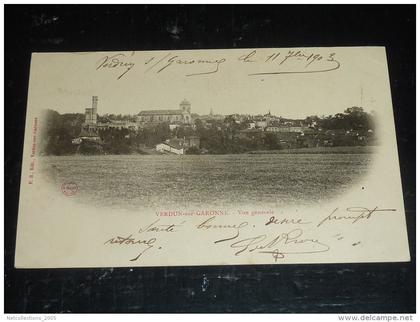 Verdun s/ Garonne le 11 7bre 1903
F. B., Edit. Verdun-sur-Garonne
VERDUN-sur-GARONNE - Vue générale
Santé bonne, désire prompt
retour.
Netcollections_2005
http://www.delcampe.net